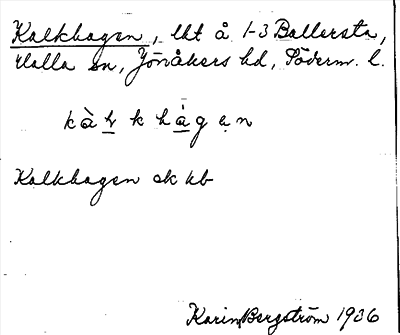 Kalkhagen, lht å 1-3 Ballersta,
Halla sn, Jönåkers hd, Söderm. l.
kàlkhágen
Kalkhagen ek kb
Karin Bergström 1936